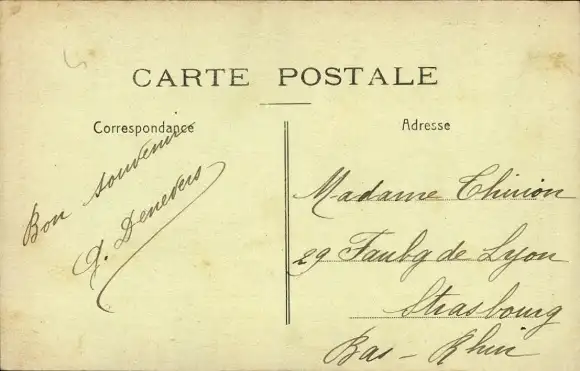 CARTE POSTALE
Correspondance
Bon souvenir
G. Denevers
Adresse
Madame Thirion
29 Faubg de Lyon
Strasbourg
Bas-Rhin